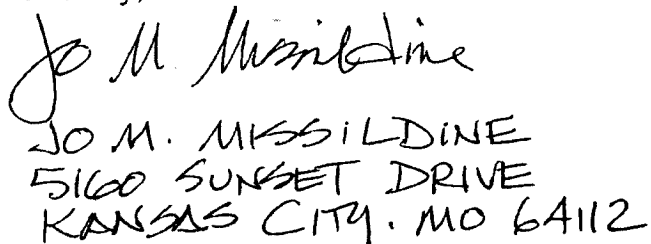 Jo M Missildine
JO M. MISSILDINE
5160 SUNSET DRIVE
KANSAS CITY. MO 64112